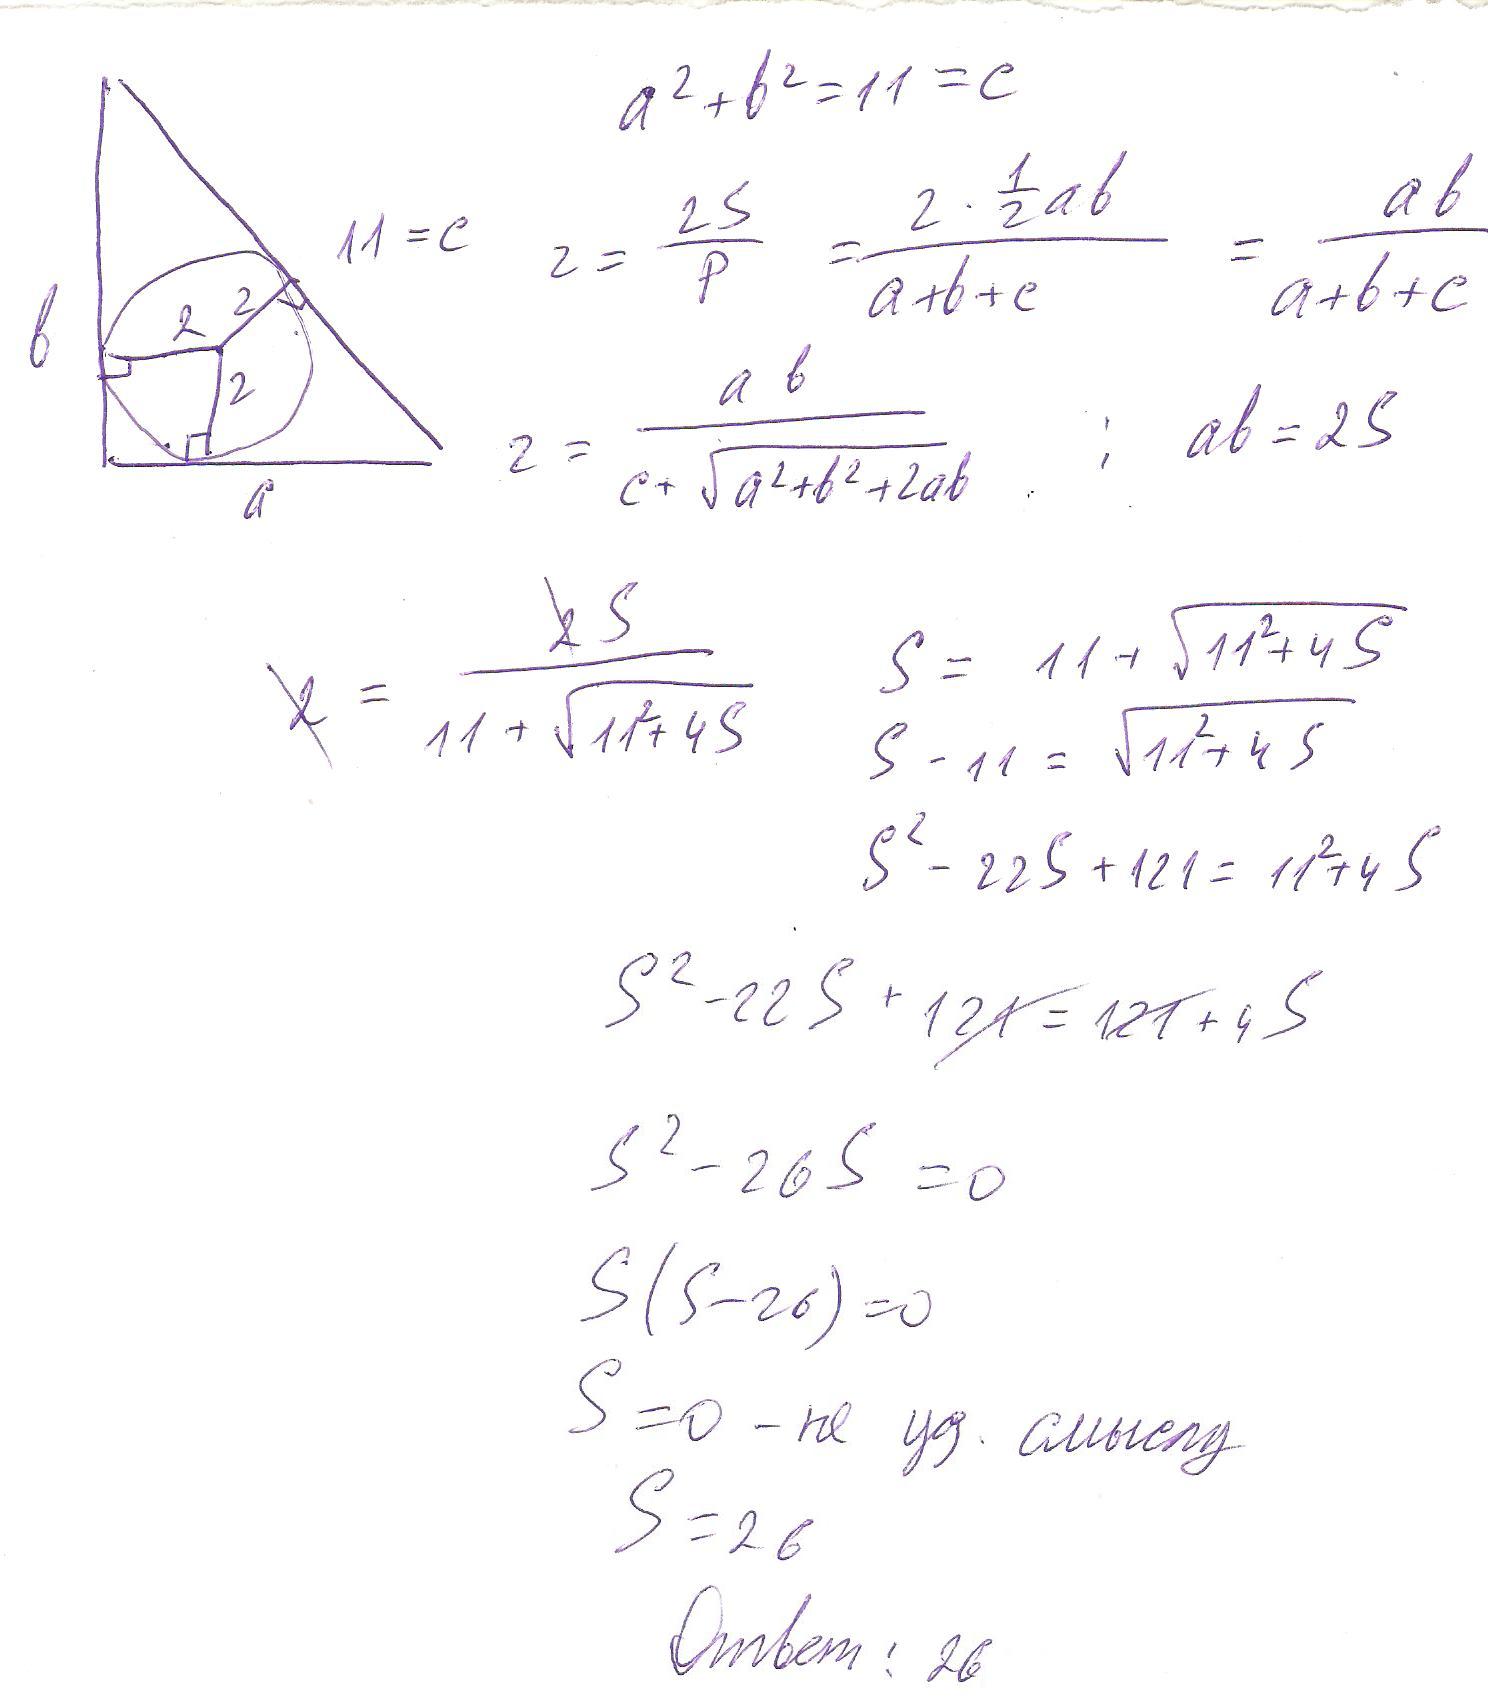 a² + b² = 11 = c
11 = c
r = 2S/P = (2 · 1/2 ab)/(a+b+c) = ab/(a+b+c)
b
2
2
2
a
r = ab/(c + √(a²+b²+2ab)) ; ab = 2S
2 = 2S/(11 + √(11²+4S))
S = 11 + √(11²+4S)
S - 11 = √(11²+4S)
S² - 22S + 121 = 11²+4S
S² - 22S + 121 = 121 + 4S
S² - 26S = 0
S(S-26) = 0
S = 0 - не уд. смыслу
S = 26
Ответ: 26